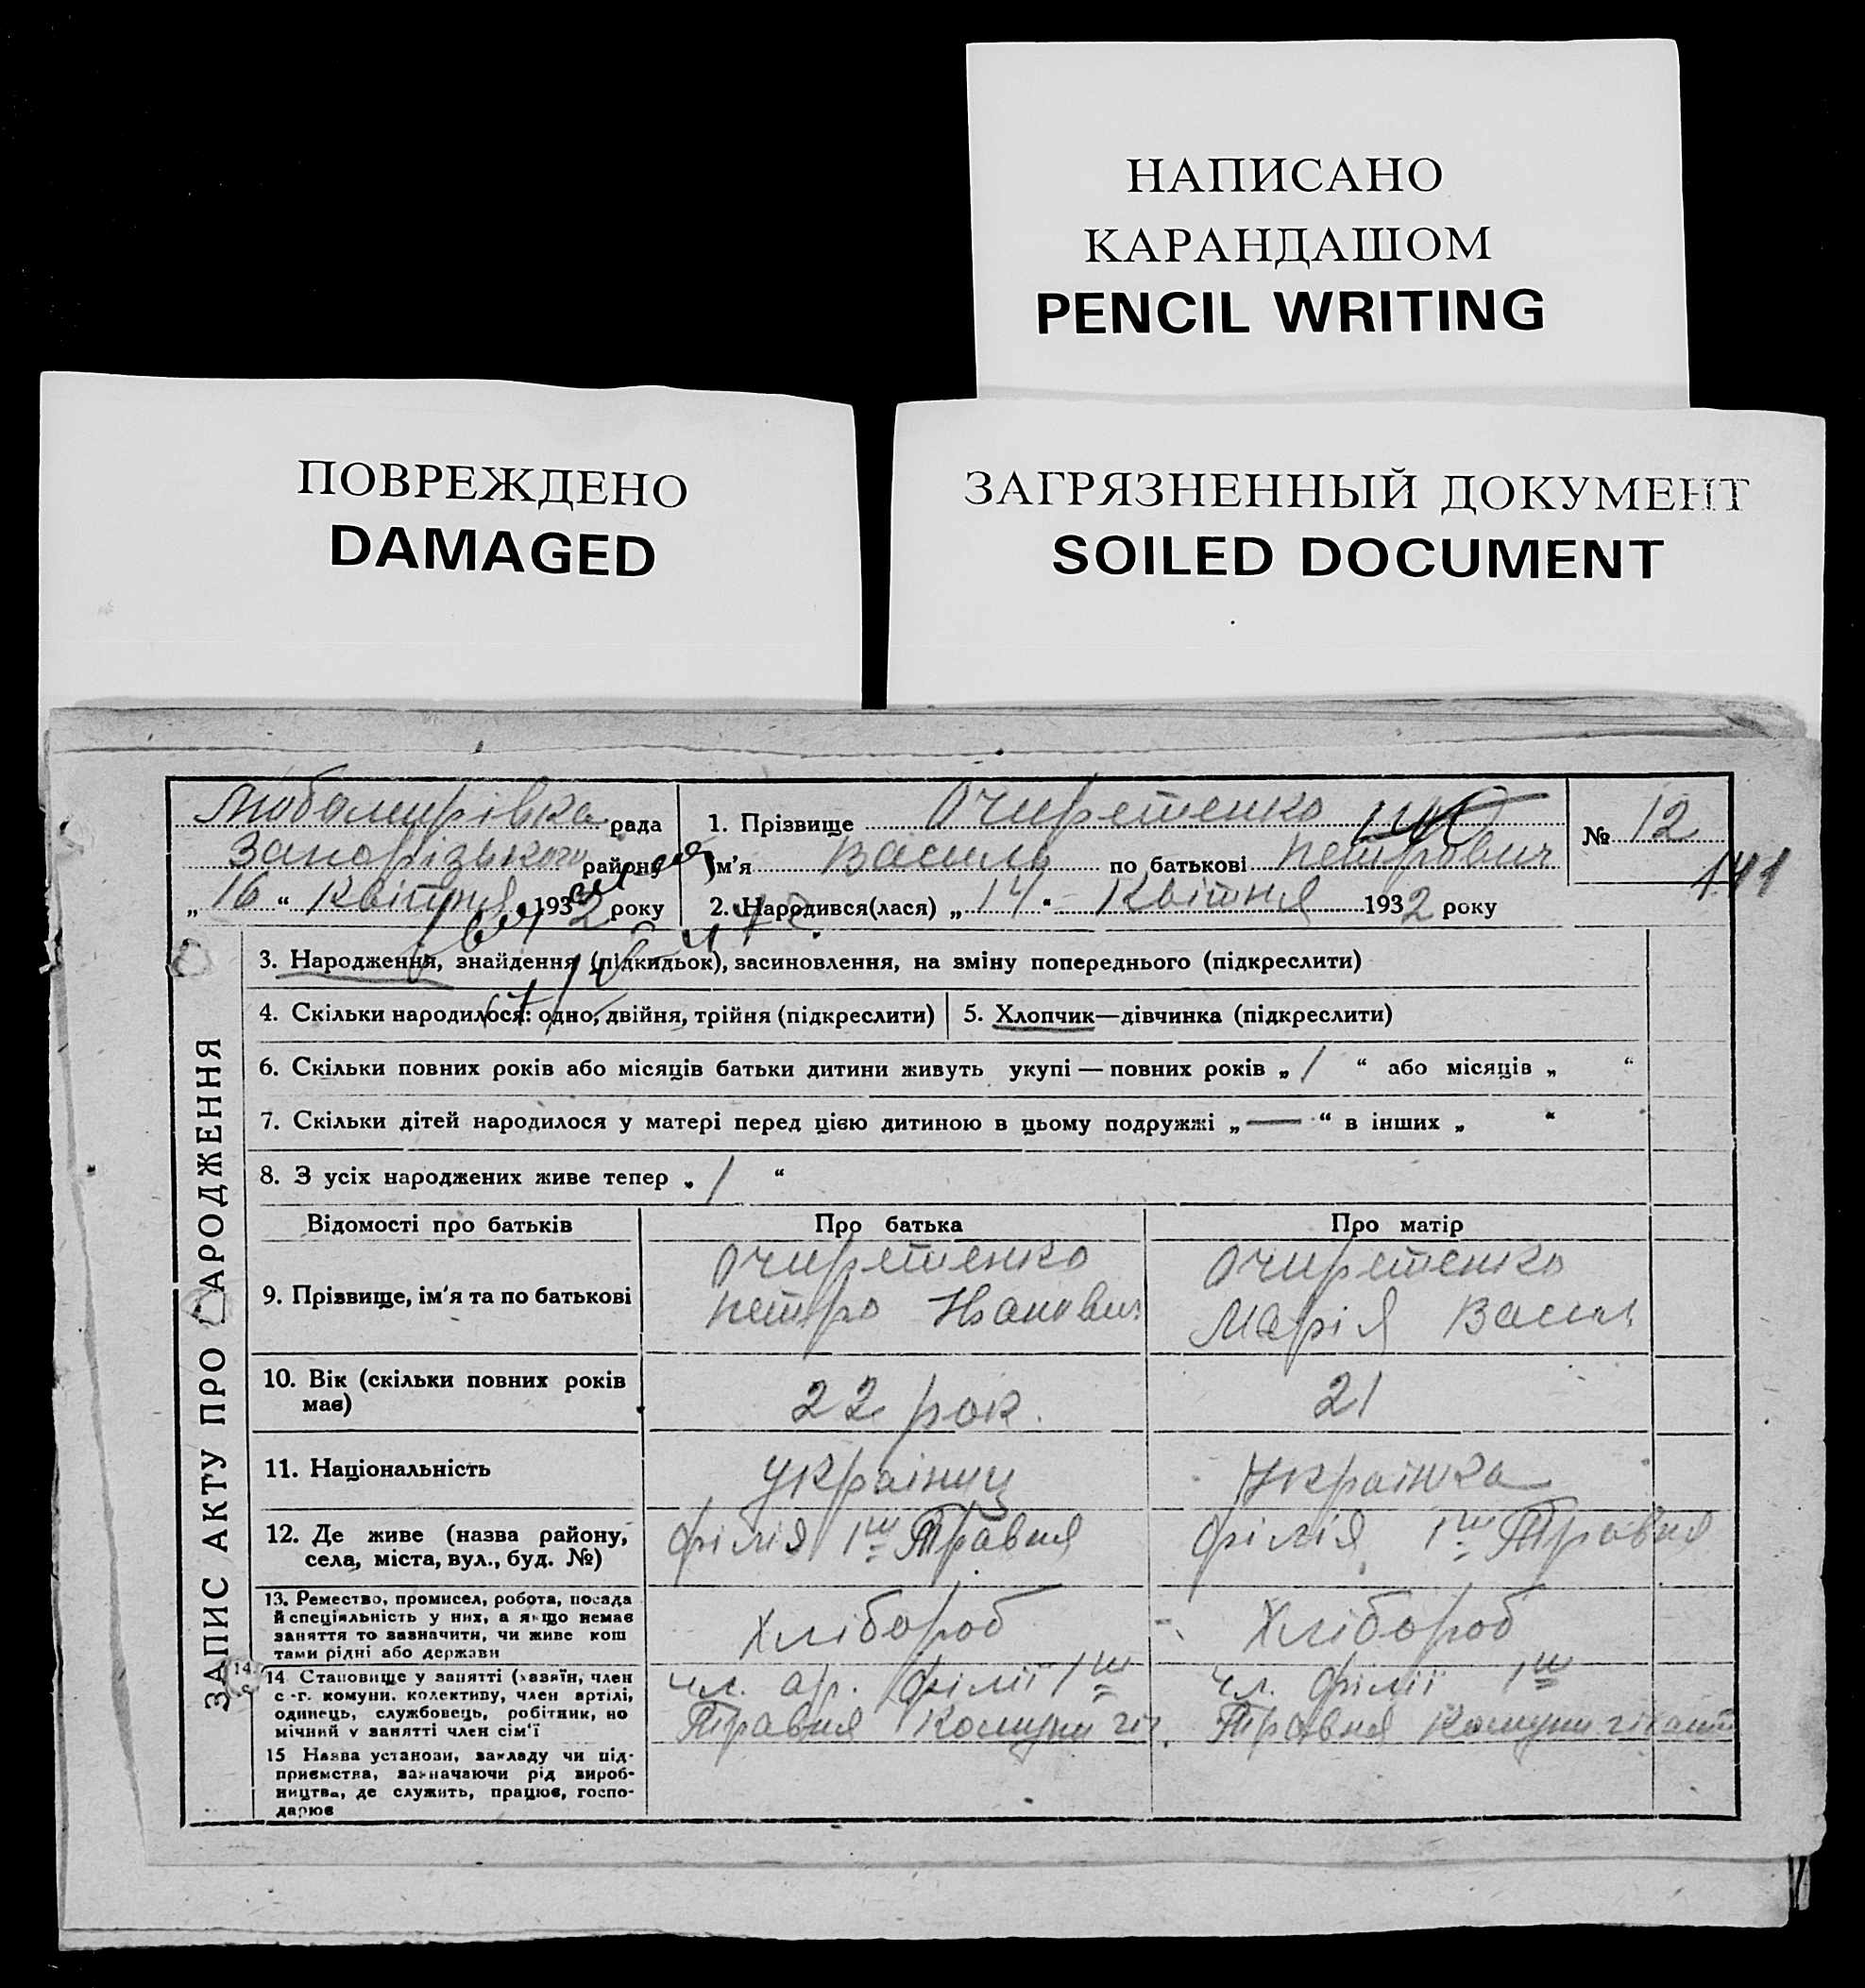 НАПИСАНО
КАРАНДАШОМ
PENCIL WRITING
ПОВРЕЖДЕНО
DAMAGED
ЗАГРЯЗНЕННЫЙ ДОКУМЕНТ
SOILED DOCUMENT
Любомирівка рада
Запорізького району
„ 16 “ Квітня 1932 року
1. Прізвище Очиретенко
Ім'я Василь по батькові Петрович
2. Народився(лася) „ 14 “ Квітня 1932 року
№ 12
141
ЗАПИС АКТУ ПРО НАРОДЖЕННЯ
3. Народження, знайдення (підкидьок), засиновлення, на зміну попереднього (підкреслити)
4. Скільки народилося: одно, двійня, трійня (підкреслити)
5. Хлопчик—дівчинка (підкреслити)
6. Скільки повних років або місяців батьки дитини живуть укупі — повних років „ 1 “ або місяців „ “
7. Скільки дітей народилося у матері перед цією дитиною в цьому подружжі „ — “ в інших „ “
8. З усіх народжених живе тепер „ 1 “
Відомості про батьків
Про батька
Про матір
9. Прізвище, ім'я та по батькові
Очиретенко
Петро Іванович
Очиретенко
Марія Васил
10. Вік (скільки повних років
має)
22 рок.
21
11. Національність
Українец
Українка
12. Де живе (назва району,
села, міста, вул., буд. №)
Філія 1ш Травня
Філія 1ш Травня
13. Ремество, промисел, робота, посада
й спеціяльність у них, а якщо немає
заняття то зазначити, чи живе кош
тами рідні або держави
Хлібороб
Хлібороб
14 Становище у занятті (хазяїн, член
с.-г. комуни, колективу, член артілі,
одинець, службовець, робітник, по
мічний у занятті член сім'ї
чл. ар. філії 1ш
Травня Комуни гіг
чл. філії 1ш
Травня Комуни гігант
15 Назва установи, закладу чи під-
приємства, зазначаючи рід вироб-
ництва, де служить, працює, госпо-
дарює
14